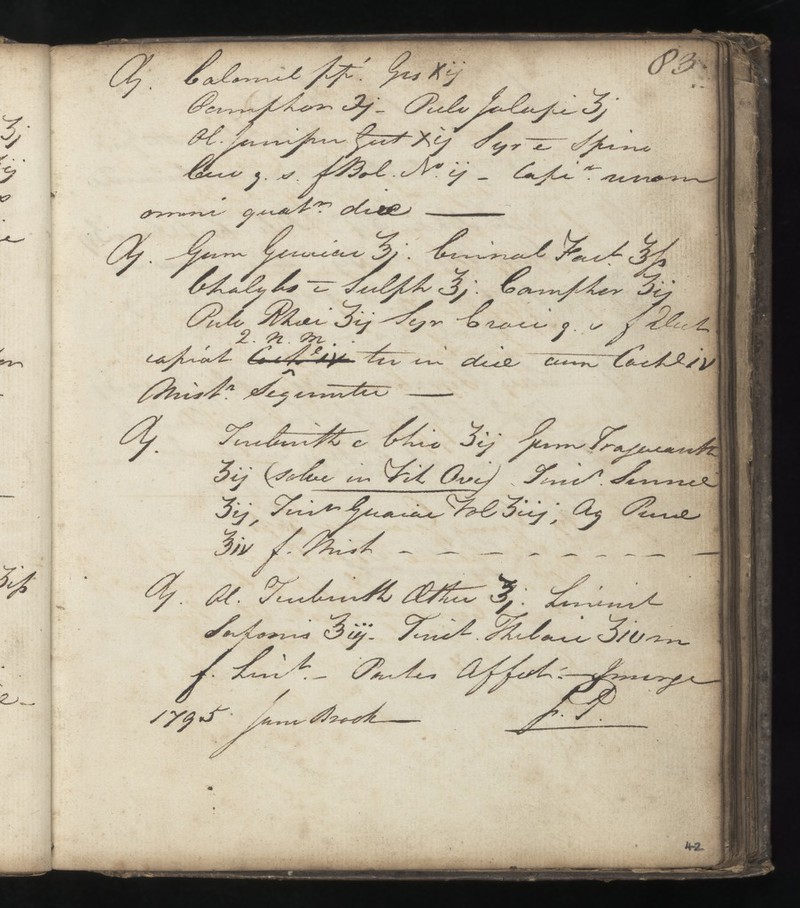 83
℞. Calomel ppt. Grs xij
Camphor ℈j - Pulv Jalapi ʒj
Ol. Juniper Gut xij Syr e Spina
Cerv q. s. f Bol. No. ij - Capi.t unom
omni quat.r die —
℞. Gum Guaiac ʒj. Cinnab Fact. ʒſs
Chalybs c Sulph ʒj. Camphor ʒij
Pulv Rhœi ʒij Syr Croci q. s f Elect
2. n. m.
capiat ter in die cum Cochl iv
Mist.r Sequente —
℞. Terebinth e Chio ʒij Gum Tragacanth
ʒij (solve in Vit Ovi) Tinct. Sennæ
ʒij, Tinct Guaiac Vol ʒiij, Aq Puræ
℥iv f. Mist - - - - - - - -
℞. Ol. Terebinth Æther ℥j. Liniment
Saponis ℥iij - Tinct. Thebaic ʒiv m
f. Lint. - Partes Affect: - Imurge
1795. Jane Brook — J. P.
ʒj
42